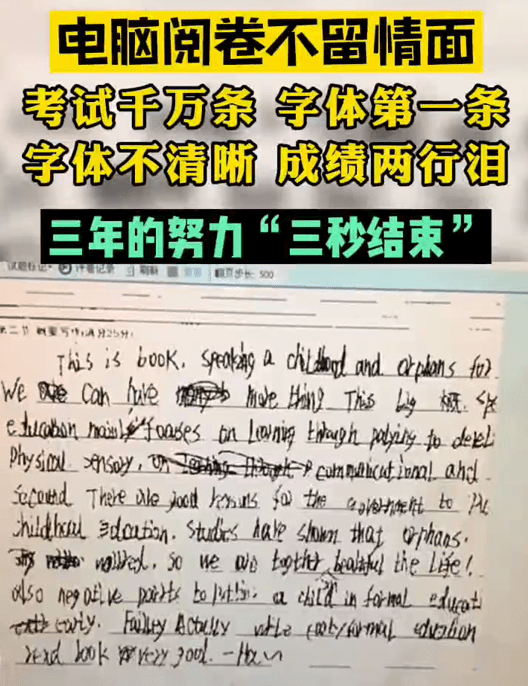 电脑阅卷不留情面
考试千万条 字体第一条
字体不清晰 成绩两行泪
三年的努力“三秒结束”
试题标记 评卷记录 刷新 翻页步长: 500
第二节 概要写作(满分25分)
This is book, speaking a childhood and orphans for
we can have more thing This big 概.
education mainly focuses on learning through palying to develi
Physical sensory, communicational and
second There are good resuns for the government to
childhcal Edcation. Studies have shown that orphans.
so we are together beautiful the life!
also negative points to a child in formal educati
early. Actually formal eduction
read book very good.